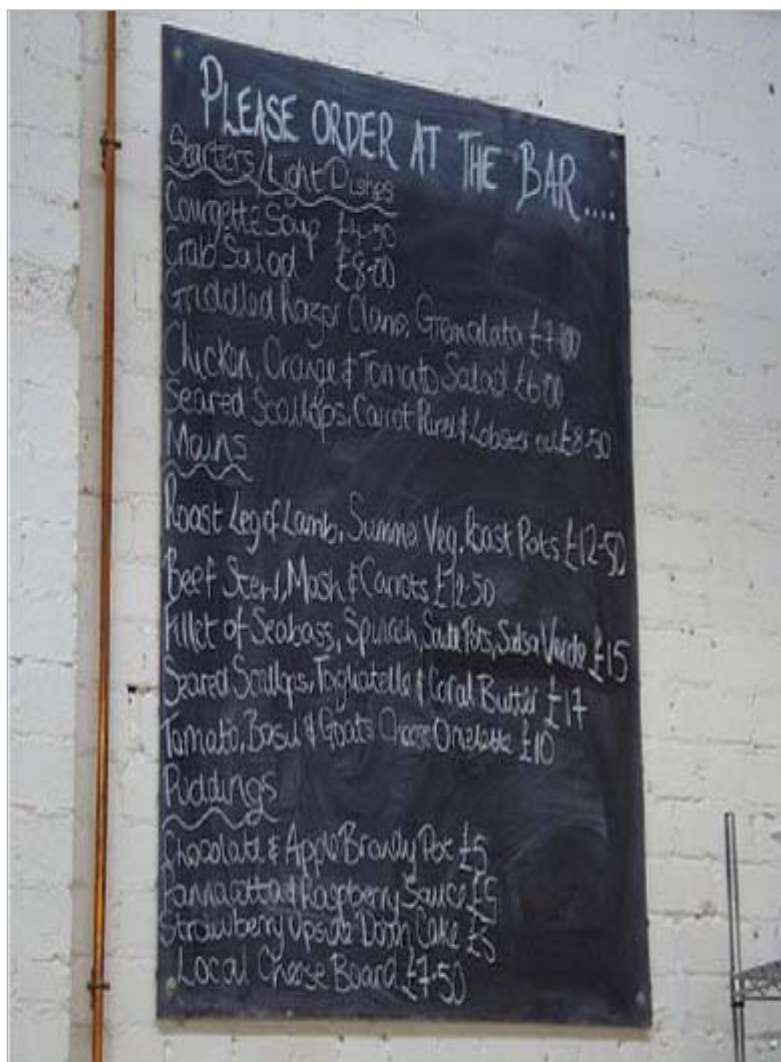 PLEASE ORDER AT THE BAR....
Starters/Light Dishes
Courgette Soup £4.50
Crab Salad £8.00
Griddled Razor Clams, Gremalata £7.00
Chicken, Orange & Tomato Salad £6.00
Seared Scallops, Carrot Puree & Lobster £8.50
Mains
Roast Leg of Lamb, Summer Veg, Roast Pots £12.50
Beef Stew, Mash & Carrots £12.50
Fillet of Seabass, Spinach, Sauté Pots, Salsa Verde £15
Seared Scallops, Tagliatelle & Coral Butter £17
Tomato, Basil & Goats Cheese Omelette £10
Puddings
Chocolate & Apple Brandy Pot £5
Pannacotta & Raspberry Sauce £5
Strawberry Upside Down Cake £5
Local Cheese Board £7.50